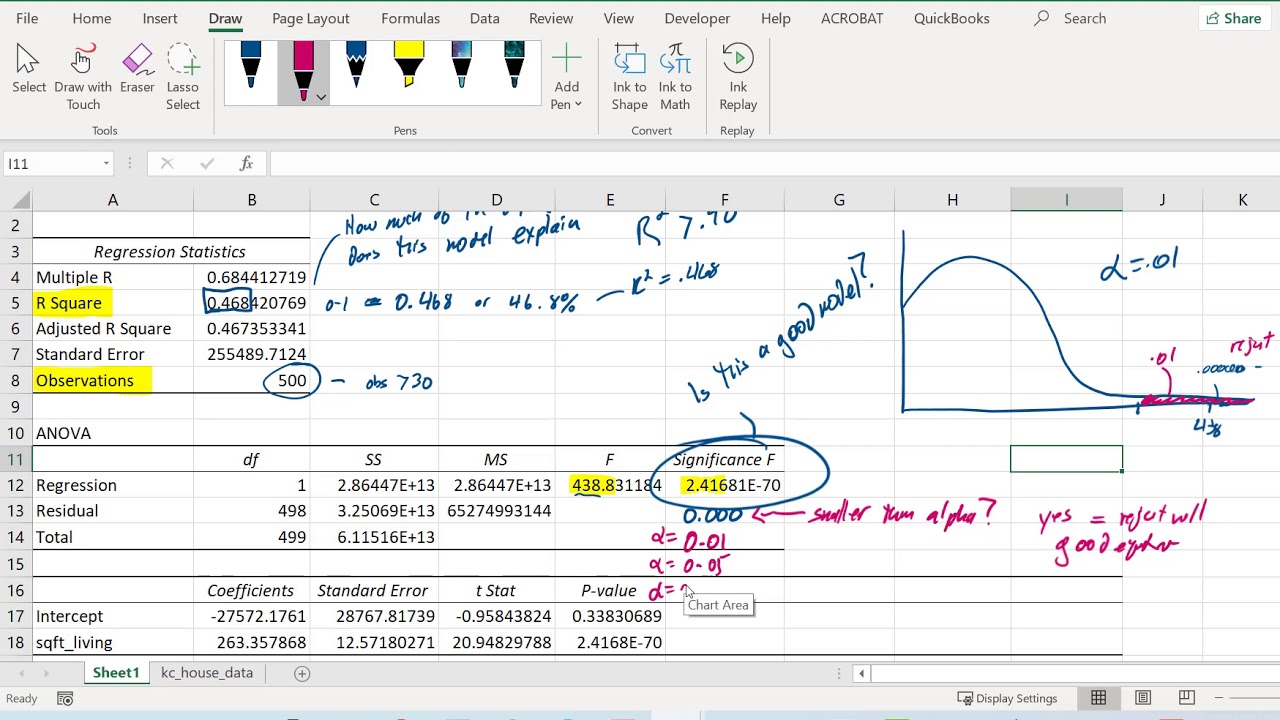 File Home Insert Draw Page Layout Formulas Data Review View Developer Help ACROBAT QuickBooks Search Share
Select Draw with Touch Eraser Lasso Select Add Pen Ink to Shape Ink to Math Ink Replay
Tools Pens Convert Replay
I11 fx
A B C D E F G H I J K
2 How much of
does this model explain R² 7.70
3 Regression Statistics
4 Multiple R 0.684412719
R² = .468
5 R Square 0.468420769 0-1 = 0.468 or 46.8%
6 Adjusted R Square 0.467353341
7 Standard Error 255489.7124
8 Observations 500 - obs >30
Is this a good model?
α = .01
.01 reject
.000000
438
9
10 ANOVA
11 df SS MS F Significance F
12 Regression 1 2.86447E+13 2.86447E+13 438.831184 2.41681E-70
13 Residual 498 3.25069E+13 65274993144 0.000 smaller than alpha? yes = reject will
good
14 Total 499 6.11516E+13 α= 0.01
15 α= 0.05
16 Coefficients Standard Error t Stat P-value α=
Chart Area
17 Intercept -27572.1761 28767.81739 -0.95843824 0.33830689
18 sqft_living 263.357868 12.57180271 20.94829788 2.4168E-70
Sheet1 kc_house_data
Ready Display Settings